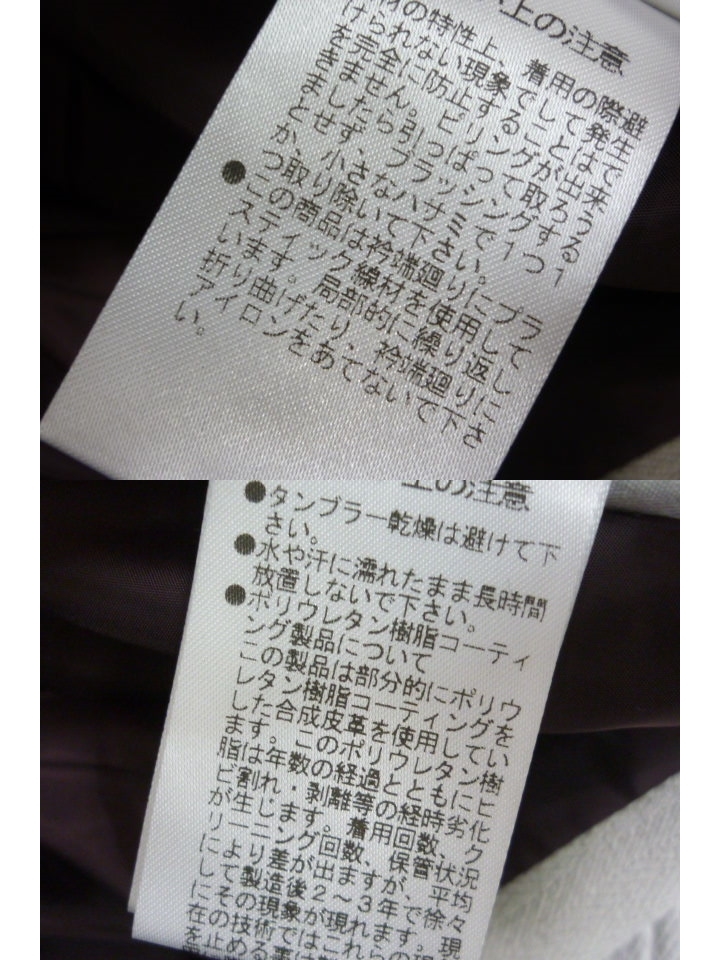 上の注意
材の特性上、着用の際避
けられない現象でして発生
を完全に防止することは出来
きません。ピリングが出うる
ましたら引っぱって取ろう
とせず、ブラッシングする1
か、小さなハサミで1つ1
つ取り除いて下さい。
●この商品は衿端廻りにプラ
スティック線材を使用して
います。局部的に繰り返し
折り曲げたり、衿端廻りに
アイロンをあてないで下さ
い。
上の注意
●タンブラー乾燥は避けて下
さい。
●水や汗に濡れたまま長時間
放置しないで下さい。
●ポリウレタン樹脂コーティ
ング製品について
この製品は部分的にポリウ
レタン樹脂コーティングを
した合成皮革を使用してい
ます。このポリウレタン樹
脂は年数の経過とともにヒ
ビ割れ・剥離等の経時劣化
が生じます。着用回数、ク
リーニング回数、保管状況
により差が出ますが、平均
して製造後2～3年で徐々
にその現象が現れます。現
在の技術ではこれらの現